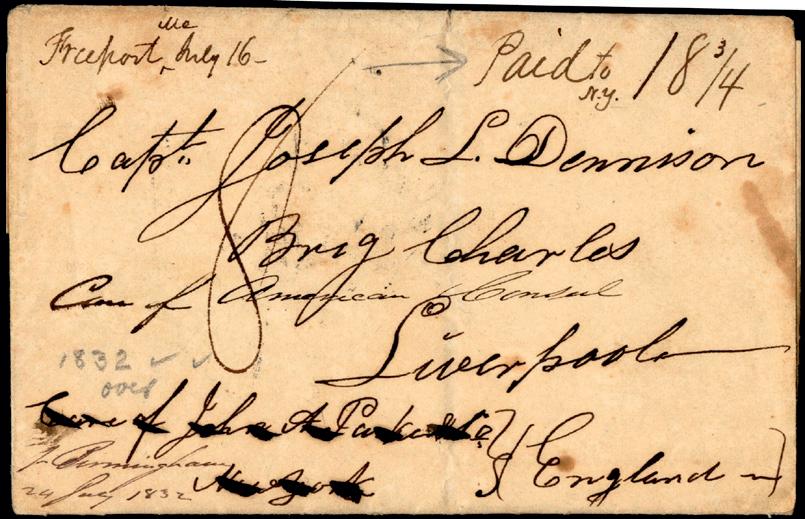 Freeport Me July 16 -
Paid to N.Y. 18 3/4
8
Capt. Joseph L. Dennison
Brig Charles
Care of American Consul
Liverpool
1832
over
Care of John A Parker &
New York
England
Birmingham
24 July 1832